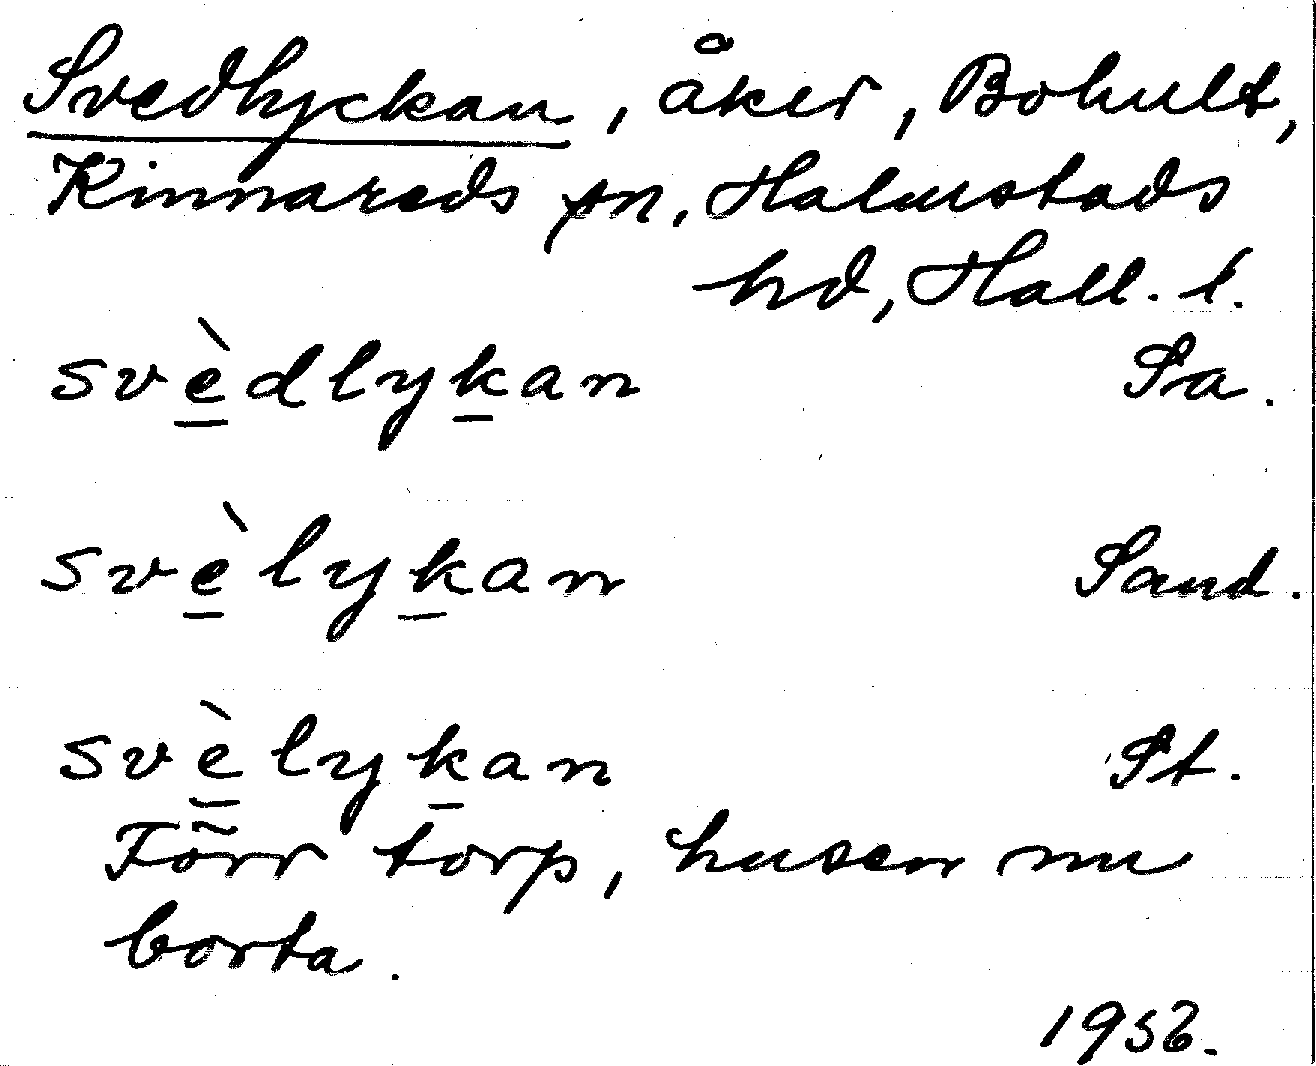 Svedlyckan, åker, Bohult,
Kinnareds sn, Halmstads
hd, Hall. l.
svèdlykan Sa.
svèlykan Sand.
svèlykan St.
Förr torp, husen nu
borta.
1952.